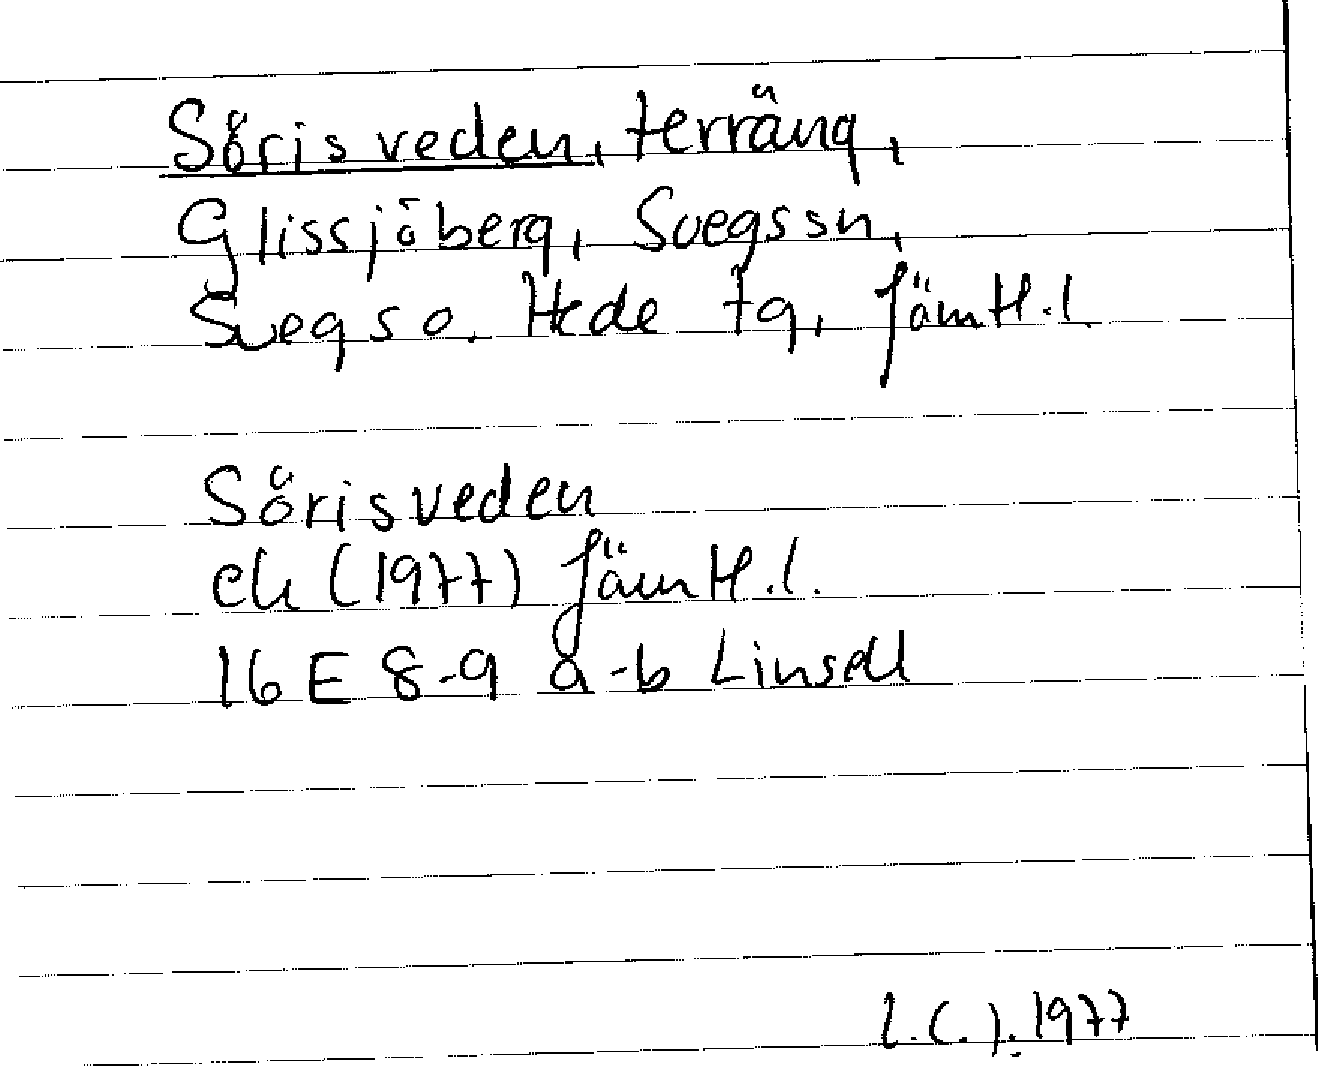 Sörisveden, terräng,
Glissjöberg, Svegs sn,
Svegs o. Hede tg, Jämtl. l.
Sörisveden
ek (1977) Jämtl. l.
16 E 8-9 a-b Linsell
1977